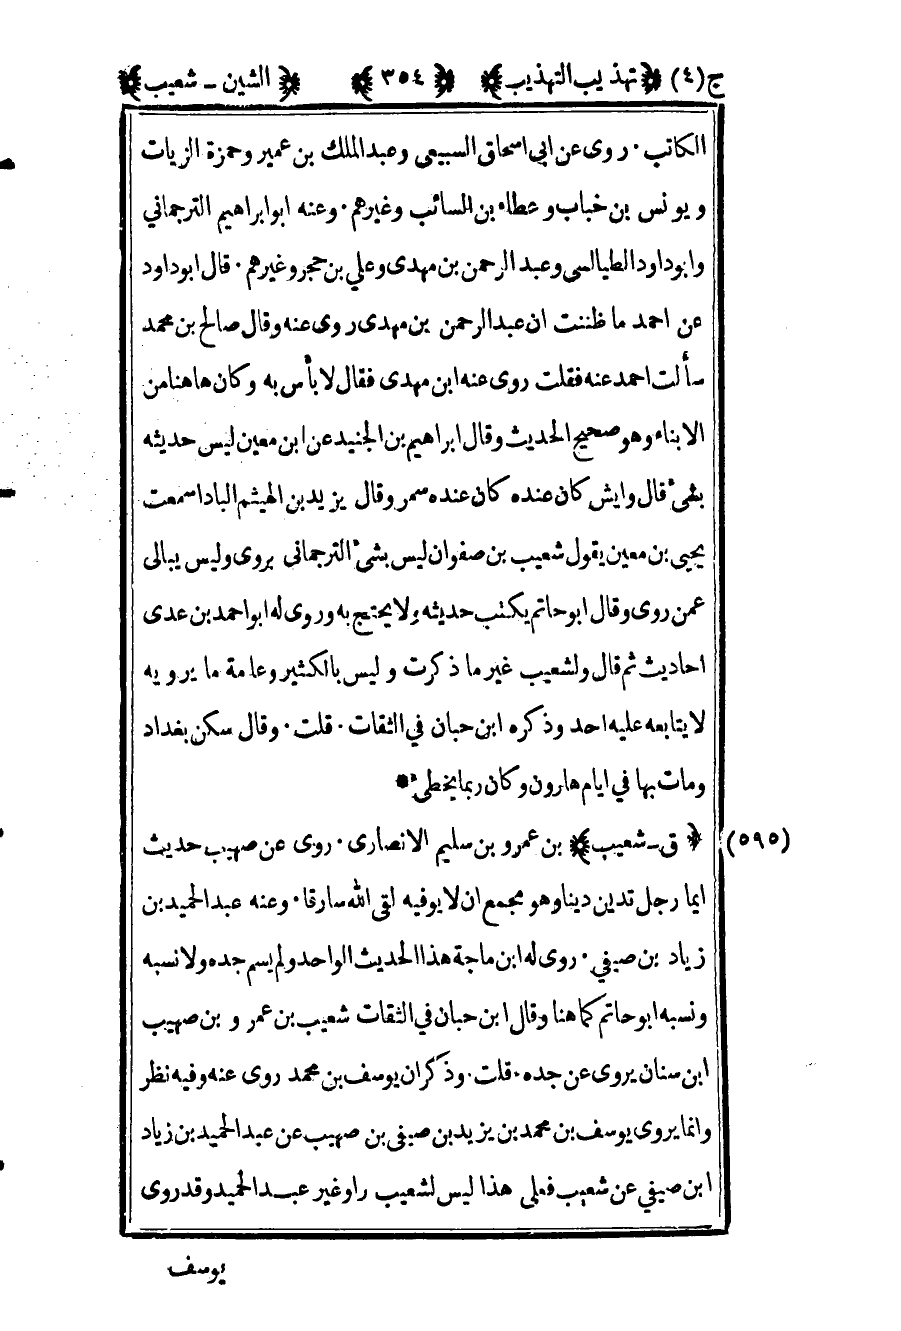 ج(٤) ﴿تهذيب التهذيب﴾ ﴿٣٥٤﴾ ﴿الشين ــ شعيب﴾
الكاتب · روى عن ابى اسحاق السبيعى وعبدالملك بن عمير وحمزة الزيات
ويونس بن خباب وعطاء بن السائب وغيرهم · وعنه ابوابراهيم الترجماني
وابوداود الطيالسى وعبد الرحمن بن مهدى وعلي بن حجر وغيرهم · قال ابوداود
عن احمد ما ظننت ان عبدالرحمن بن مهدى روى عنه وقال صالح بن محمد
سألت احمد عنه فقلت روى عنه ابن مهدى فقال لا بأس به وكان هاهنا من
الابناء وهو صحيح الحديث وقال ابراهيم بن الجنيد عن ابن معين ليس حديثه
بشئ قال وايش كان عنده كان عنده سمر وقال يزيد بن الهيثم الباداسمعت
يحيى بن معين يقول شعيب بن صفوان ليس بشئ الترجمانى يروى وليس يبالى
عمن روى وقال ابوحاتم يكتب حديثه ولا يحتج به وروى له ابواحمد بن عدى
احاديث ثم قال ولشعيب غير ما ذكرت وليس بالكثير وعامة ما يرويه
لا يتابعه عليه احد وذكره ابن حبان في الثقات · قلت · وقال سكن بغداد
ومات بها في ايام هارون وكان ربما يخطئ *
(٥٩٥) ﴿ ق ــ شعيب﴾ بن عمرو بن سليم الانصارى · روى عن صهيب حديث
ايما رجل تدين دينا وهو مجمع ان لا يوفيه لقى الله سارقا · وعنه عبد الحميد بن
زياد بن صيفي · روى له ابن ماجة هذا الحديث الواحد ولم يسم جده ولا نسبه
ونسبه ابوحاتم كما هنا وقال ابن حبان في الثقات شعيب بن عمرو بن صهيب
ابن سنان يروى عن جده · قلت · وذكر ان يوسف بن محمد روى عنه وفيه نظر
وانما يروى يوسف بن محمد بن يزيد بن صيفى بن صهيب عن عبد الحميد بن زياد
ابن صيفي عن شعيب فعلى هذا ليس لشعيب راو غير عبد الحميد وقد روى
يوسف